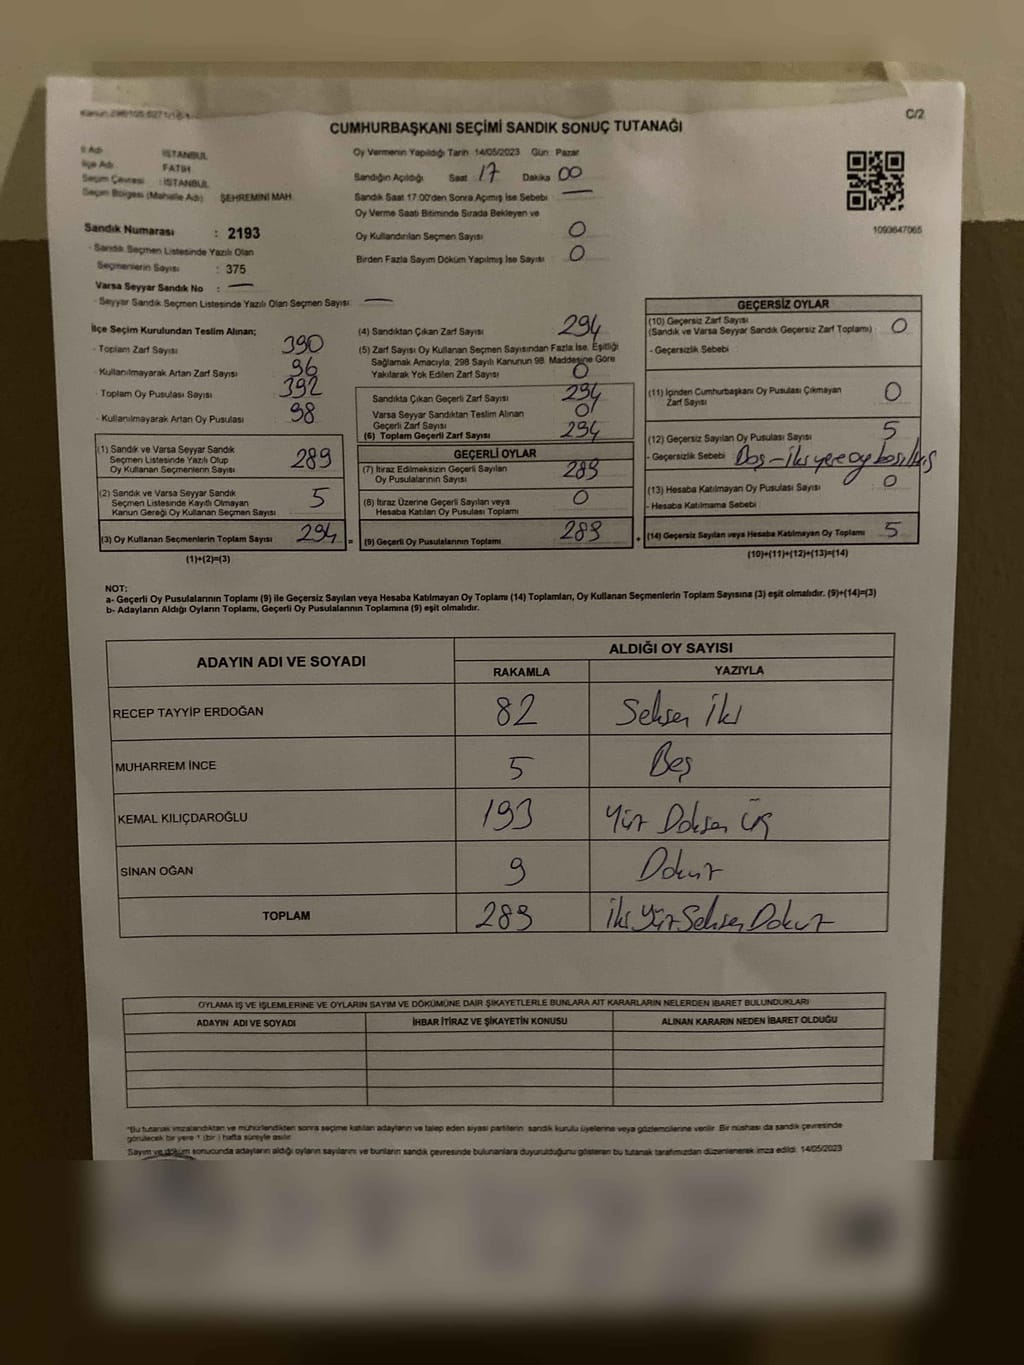 C/2
CUMHURBAŞKANI SEÇİMİ SANDIK SONUÇ TUTANAĞI
İl Adı : İSTANBUL
İlçe Adı : FATİH
Seçim Çevresi : İSTANBUL
Seçim Bölgesi (Mahalle Adı) ŞEHREMİNİ MAH.
Sandık Numarası : 2193
- Sandık Seçmen Listesinde Yazılı Olan
Seçmenlerin Sayısı : 375
Varsa Seyyar Sandık No : —
- Seyyar Sandık Seçmen Listesinde Yazılı Olan Seçmen Sayısı: —
Oy Vermenin Yapıldığı Tarih 14/05/2023 Gün : Pazar
Sandığın Açıldığı Saat 17 Dakika 00
Sandık Saat 17:00'den Sonra Açılmış İse Sebebi —
Oy Verme Saati Bitiminde Sırada Bekleyen ve
Oy Kullandırılan Seçmen Sayısı 0
Birden Fazla Sayım Döküm Yapılmış İse Sayısı 0
1093647065
İlçe Seçim Kurulundan Teslim Alınan;
- Toplam Zarf Sayısı 390
- Kullanılmayarak Artan Zarf Sayısı 96
- Toplam Oy Pusulası Sayısı 392
- Kullanılmayarak Artan Oy Pusulası 98
(1) Sandık ve Varsa Seyyar Sandık
Seçmen Listesinde Yazılı Olup
Oy Kullanan Seçmenlerin Sayısı 289
(2) Sandık ve Varsa Seyyar Sandık
Seçmen Listesinde Kayıtlı Olmayan
Kanun Gereği Oy Kullanan Seçmen Sayısı 5
(3) Oy Kullanan Seçmenlerin Toplam Sayısı 294 =
(1)+(2)=(3)
(4) Sandıktan Çıkan Zarf Sayısı 294
(5) Zarf Sayısı Oy Kullanan Seçmen Sayısından Fazla İse, Eşitliği
Sağlamak Amacıyla, 298 Sayılı Kanunun 98. Maddesine Göre
Yakılarak Yok Edilen Zarf Sayısı 0
Sandıkta Çıkan Geçerli Zarf Sayısı 294
Varsa Seyyar Sandıktan Teslim Alınan
Geçerli Zarf Sayısı 0
(6) Toplam Geçerli Zarf Sayısı 294
GEÇERLİ OYLAR
(7) İtiraz Edilmeksizin Geçerli Sayılan
Oy Pusulalarının Sayısı 289
(8) İtiraz Üzerine Geçerli Sayılan veya
Hesaba Katılan Oy Pusulası Toplamı 0
(9) Geçerli Oy Pusulalarının Toplamı 289 +
GEÇERSİZ OYLAR
(10) Geçersiz Zarf Sayısı
(Sandık ve Varsa Seyyar Sandık Geçersiz Zarf Toplamı) 0
- Geçersizlik Sebebi
(11) İçinden Cumhurbaşkanı Oy Pusulası Çıkmayan
Zarf Sayısı 0
(12) Geçersiz Sayılan Oy Pusulası Sayısı 5
- Geçersizlik Sebebi Boş - İki yere oy basılmış
(13) Hesaba Katılmayan Oy Pusulası Sayısı 0
- Hesaba Katılmama Sebebi
(14) Geçersiz Sayılan veya Hesaba Katılmayan Oy Toplamı 5
(10)+(11)+(12)+(13)=(14)
NOT:
a- Geçerli Oy Pusulalarının Toplamı (9) ile Geçersiz Sayılan veya Hesaba Katılmayan Oy Toplamı (14) Toplamları, Oy Kullanan Seçmenlerin Toplam Sayısına (3) eşit olmalıdır. (9)+(14)=(3)
b- Adayların Aldığı Oyların Toplamı, Geçerli Oy Pusulalarının Toplamına (9) eşit olmalıdır.
ADAYIN ADI VE SOYADI ALDIĞI OY SAYISI
RAKAMLA YAZIYLA
RECEP TAYYİP ERDOĞAN 82 Seksen İki
MUHARREM İNCE 5 Beş
KEMAL KILIÇDAROĞLU 193 Yüz Doksan Üç
SİNAN OĞAN 9 Dokuz
TOPLAM 289 İki Yüz Seksen Dokuz
OYLAMA İŞ VE İŞLEMLERİNE VE OYLARIN SAYIM VE DÖKÜMÜNE DAİR ŞİKAYETLERLE BUNLARA AİT KARARLARIN NELERDEN İBARET BULUNDUKLARI
ADAYIN ADI VE SOYADI İHBAR İTİRAZ VE ŞİKAYETİN KONUSU ALINAN KARARIN NEDEN İBARET OLDUĞU
*Bu tutanak imzalandıktan ve mühürlendikten sonra seçime katılan adayların ve talep eden siyasi partilerin sandık kurulu üyelerine veya gözlemcilerine verilir. Bir nüshası da sandık çevresinde
görülecek bir yere 1 (bir) hafta süreyle asılır.
Sayım ve döküm sonucunda adayların aldığı oyların sayılarını ve bunların sandık çevresinde bulunanlara duyurulduğunu gösteren bu tutanak tarafımızdan düzenlenerek imza edildi. 14/05/2023